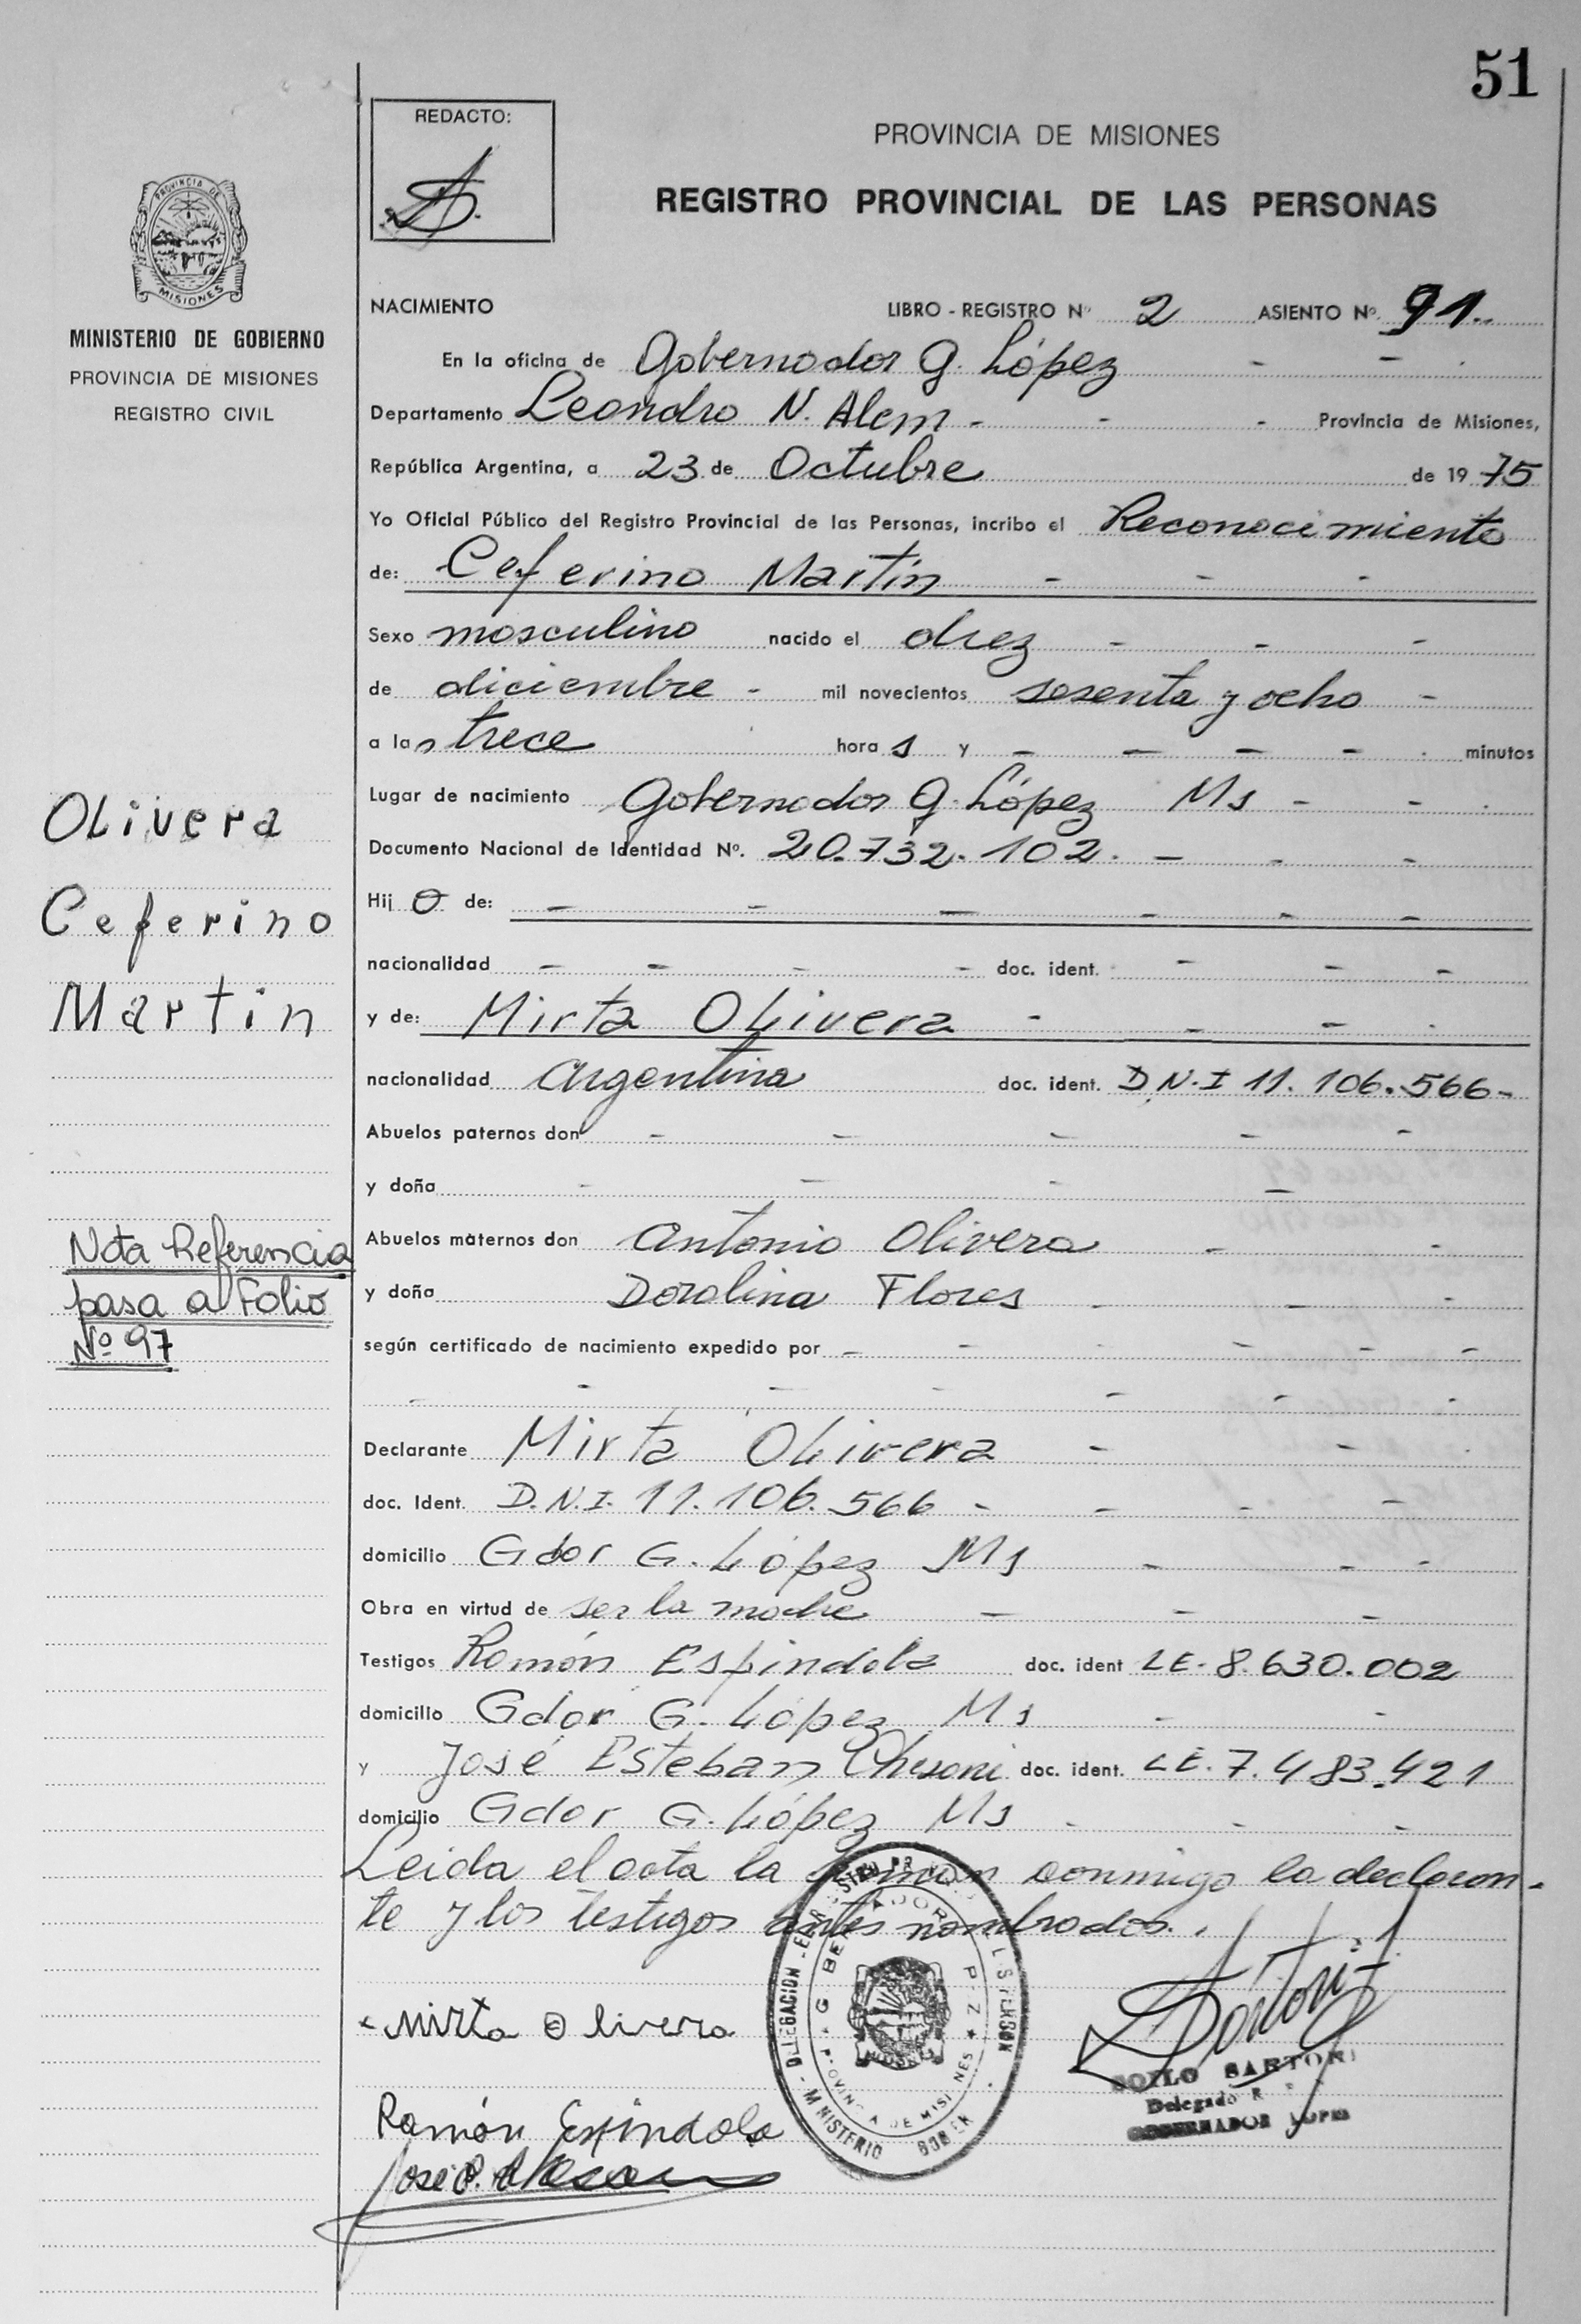 51
REDACTO:
PROVINCIA DE MISIONES
REGISTRO PROVINCIAL DE LAS PERSONAS
PROVINCIA DE
MISIONES
MINISTERIO DE GOBIERNO
PROVINCIA DE MISIONES
REGISTRO CIVIL
NACIMIENTO LIBRO - REGISTRO Nº 2 ASIENTO Nº. 91.
En la oficina de Gobernador G. López - - .
Departamento Leandro N. Alem - - - Provincia de Misiones,
República Argentina, a 23 de Octubre de 1975
Yo Oficial Público del Registro Provincial de las Personas, incribo el Reconocimiento
de: Ceferino Martín - - -
Sexo masculino nacido el diez - - -
de diciembre - mil novecientos sesenta y ocho -
a las trece horas y - - - - . minutos
Lugar de nacimiento Gobernador G. López Ms - - .
Documento Nacional de Identidad Nº. 20.732.102. - - -
Hijo de: - - - - - -
nacionalidad - - - - doc. ident. - - -
y de: Mirta Olivera - - - .
nacionalidad Argentina doc. ident. D.N.I 11.106.566-
Abuelos paternos don - - - - -
y doña - - - -
Abuelos maternos don Antonio Olivera - -
y doña Dorolina Flores - - -
según certificado de nacimiento expedido por - - - - - -
- - - - - - -
Declarante Mirta Olivera - - .
doc. Ident. D.N.I. 11.106.566 - - - -
domicilio Gdor G. López Ms - - -
Obra en virtud de ser la madre - - -
Testigos Ramón Espindola doc. ident LE-8.630.002
domicilio Gdor G. López Ms - -
y José Esteban doc. ident. LE.7.483.421
domicilio Gdor G. López Ms - - -
Leida el acta la firman conmigo la declaran-
te y los testigos antes nombrados.
Olivera
Ceferino
Martin
Nota Referencia
pasa a Folio
Nº 97
Mirta Olivera
Ramón Espindola
José
DELEGACION
MINISTERIO
PROVINCIA DE MISIONES
Sartori
ZOILO SARTORI
Delegado R
GOBERNADOR LOPEZ